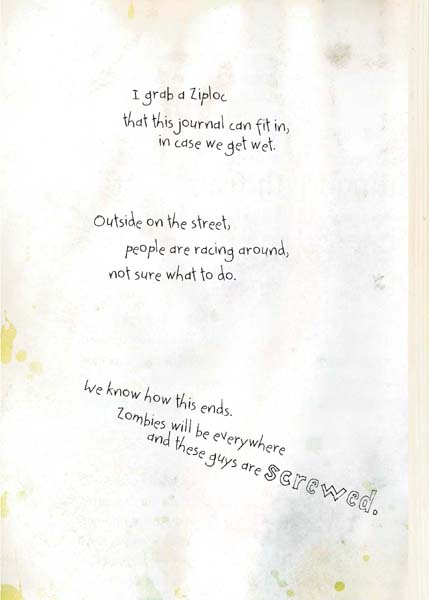 I grab a Ziploc
that this journal can fit in,
in case we get wet.
Outside on the street,
people are racing around,
not sure what to do.
We know how this ends.
Zombies will be everywhere
and these guys are screwed.